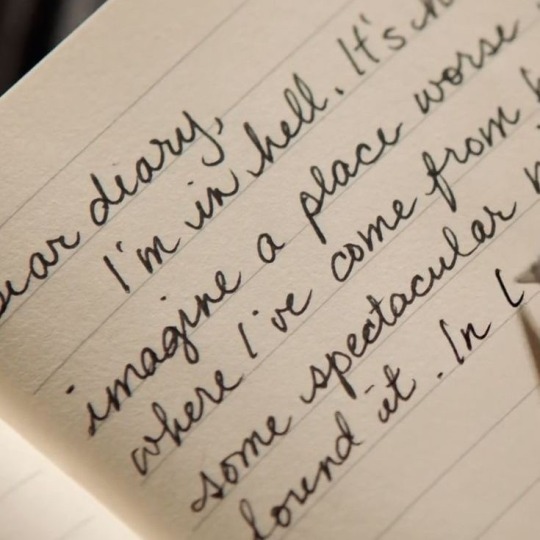 dear diary,
I'm in hell. It's
imagine a place worse
where I've come from
some spectacular
it. In